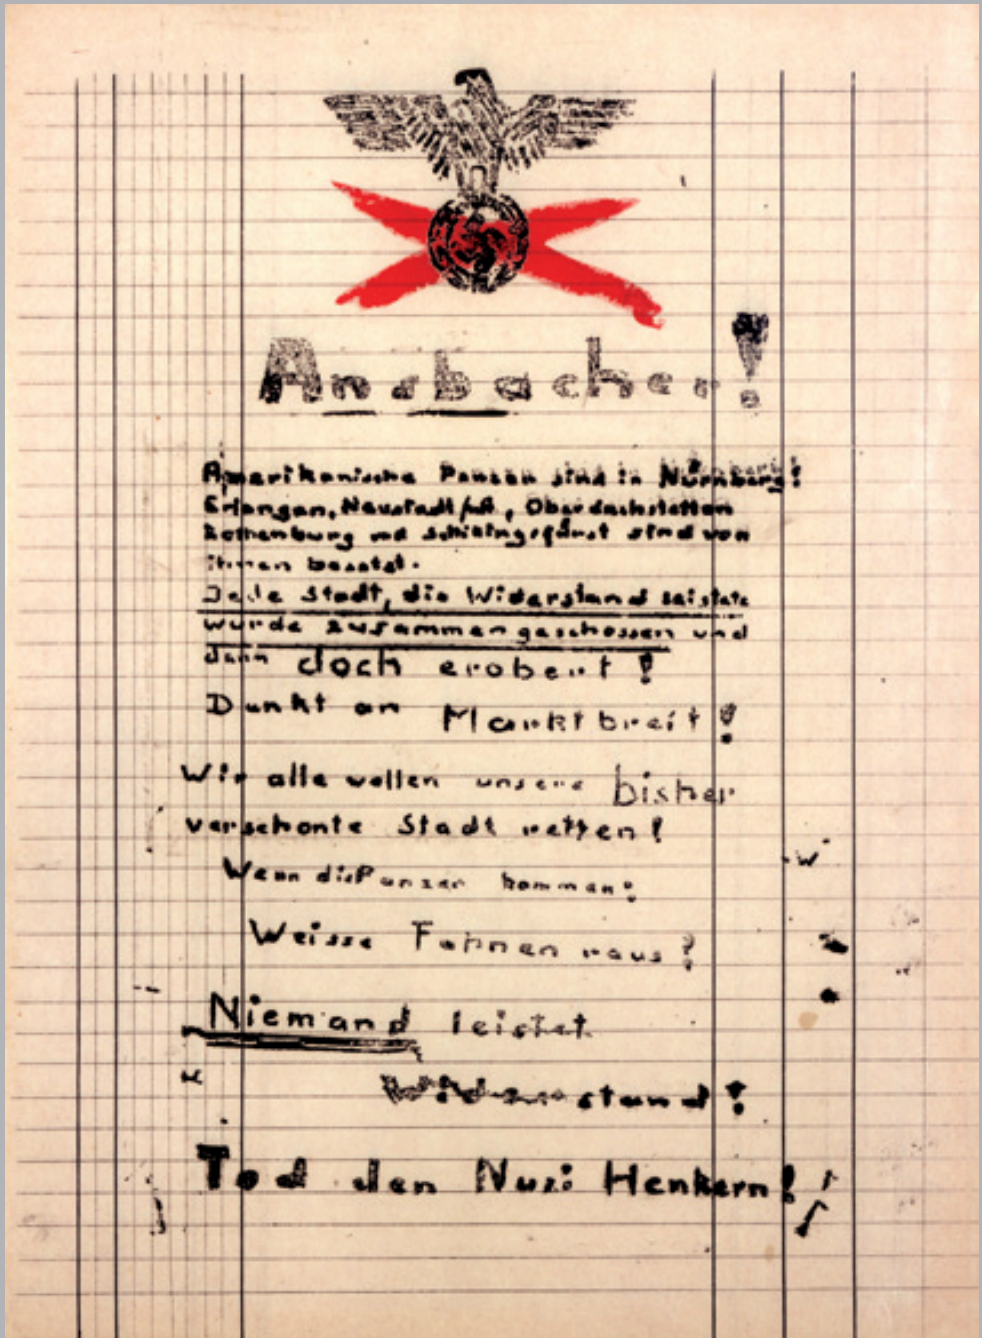 Ansbacher!
Amerikanische Panzen sind in Nürnberg!
Erlangen, Neustadt, Oberdachstetten
Rothenburg nd Schillingsfürst sind von
ihnen besetzt.
Jede Stadt, die Widerstand leistete
wurde zusammengeschossen und
dann doch erobert!
Denkt an Marktbreit!
Wir alle wollen unsere bisher
verschonte Stadt retten!
Wenn die Panzer kommen:
Weisse Fahnen raus!
Niemand leistet
Widerstand!
Tod den Nazi Henkern!